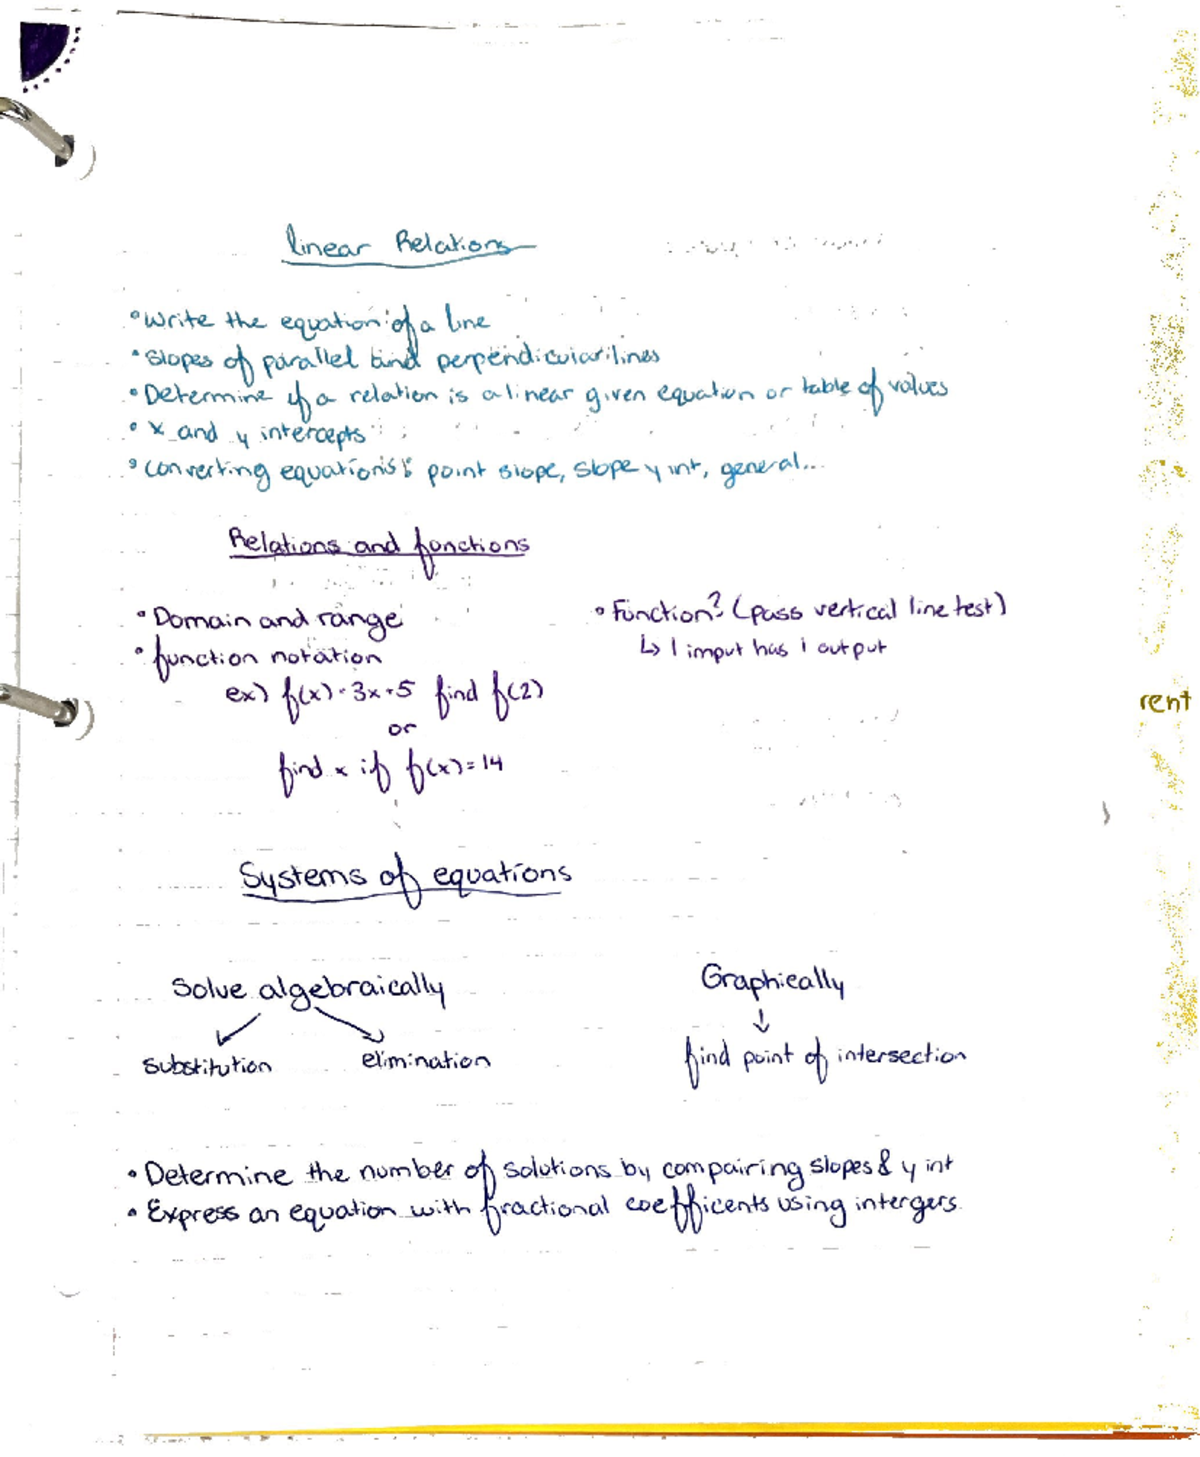 linear Relations
• Write the equation of a line
• Slopes of parallel and perpendicular lines
• Determine if a relation is a linear given equation or table of values
• x and y intercepts
• converting equations: point slope, slope y int, general...
Relations and functions
• Domain and range
• function notation
ex) f(x)=3x+5 find f(2)
or
find x if f(x)=14
• Function? (pass vertical line test)
↳ 1 imput has 1 output
rent
Systems of equations
Solve algebraically
substitution
elimination
Graphically
↓
find point of intersection
• Determine the number of solutions by compairing slopes & y int
• Express an equation with fractional coefficents using intergers.